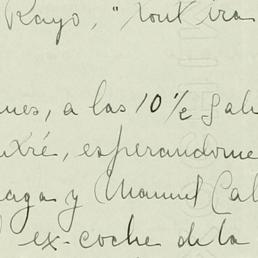 Rayo, "Tout ira
nes, a las 10 1/2 sali
uxré, esperandome
aga y Manuel Cal
ex-coche de la